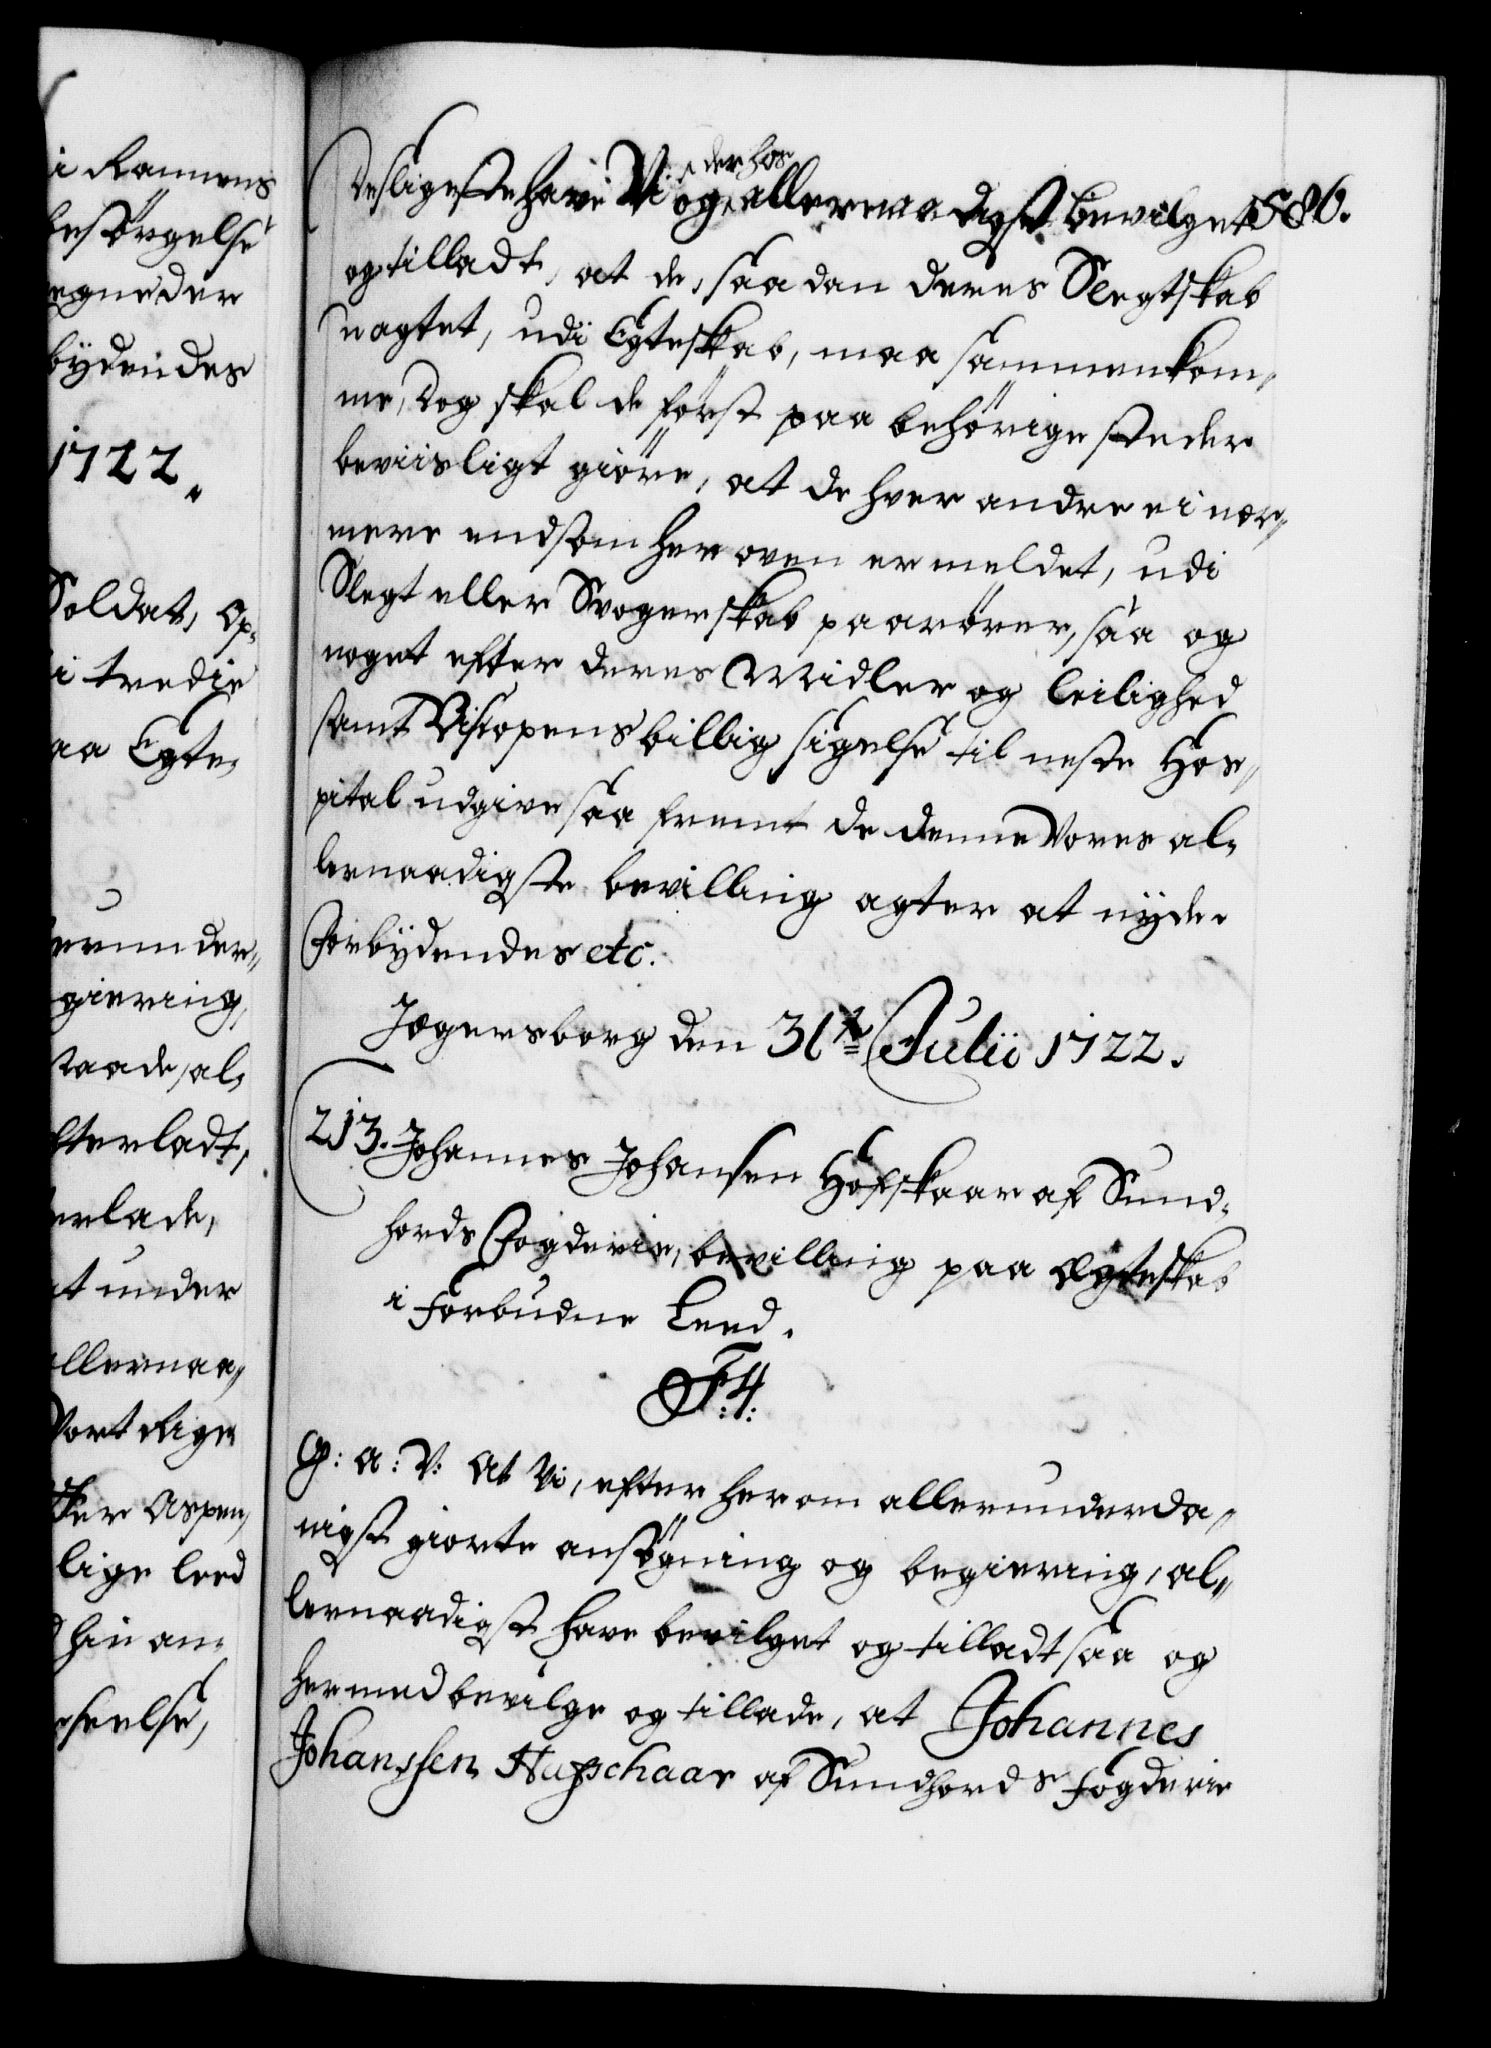 i Rammens
besørgelse
egneder
bydendes
1722.
Soldat, Op-
i tredie
aa Egte-
erunder-
giering,
naade, al-
fterladt,
erlade,
at under
allernaa-
Vort Rige
ter Aspen,
lige leed
hin an-
seelse,
586.
Desligeste have Vi og derhos allernaadigst bevilget
og tilladt, at de, saadan deres Slegtskab
uagtet, udi Egteskab, maa sammenkom-
me, Dog skal de først paa behørige steder
beviisligt giøre, at de hver andre ei nær-
mere end som her oven er meldet, udi
Slegt eller Svogerskab paarører, saa og
noget efter deres Midler og leilighed
samt Biscopens billig sigelse til neste Hos-
pital udgive saa fremt de denne Vores al-
lernaadigste bevilling agter at nyde.
Forbydendes etc.
Jægersborg den 31te Julii 1722.
213. Johannes Johansen Hofskaar af Sund-
hords Fogderie, bevilling paa Ægteskab
i forbudne Leed.
F: 4:
G: A: V: At Vi, efter herom allerunderda-
nigst giorte ansøgning og begiering, al-
lernaadigst have bevilget og tilladt saa og
hermed bevilge og tillade, at Johannes
Johanssen Hufschaar af Sundhords Fogderie